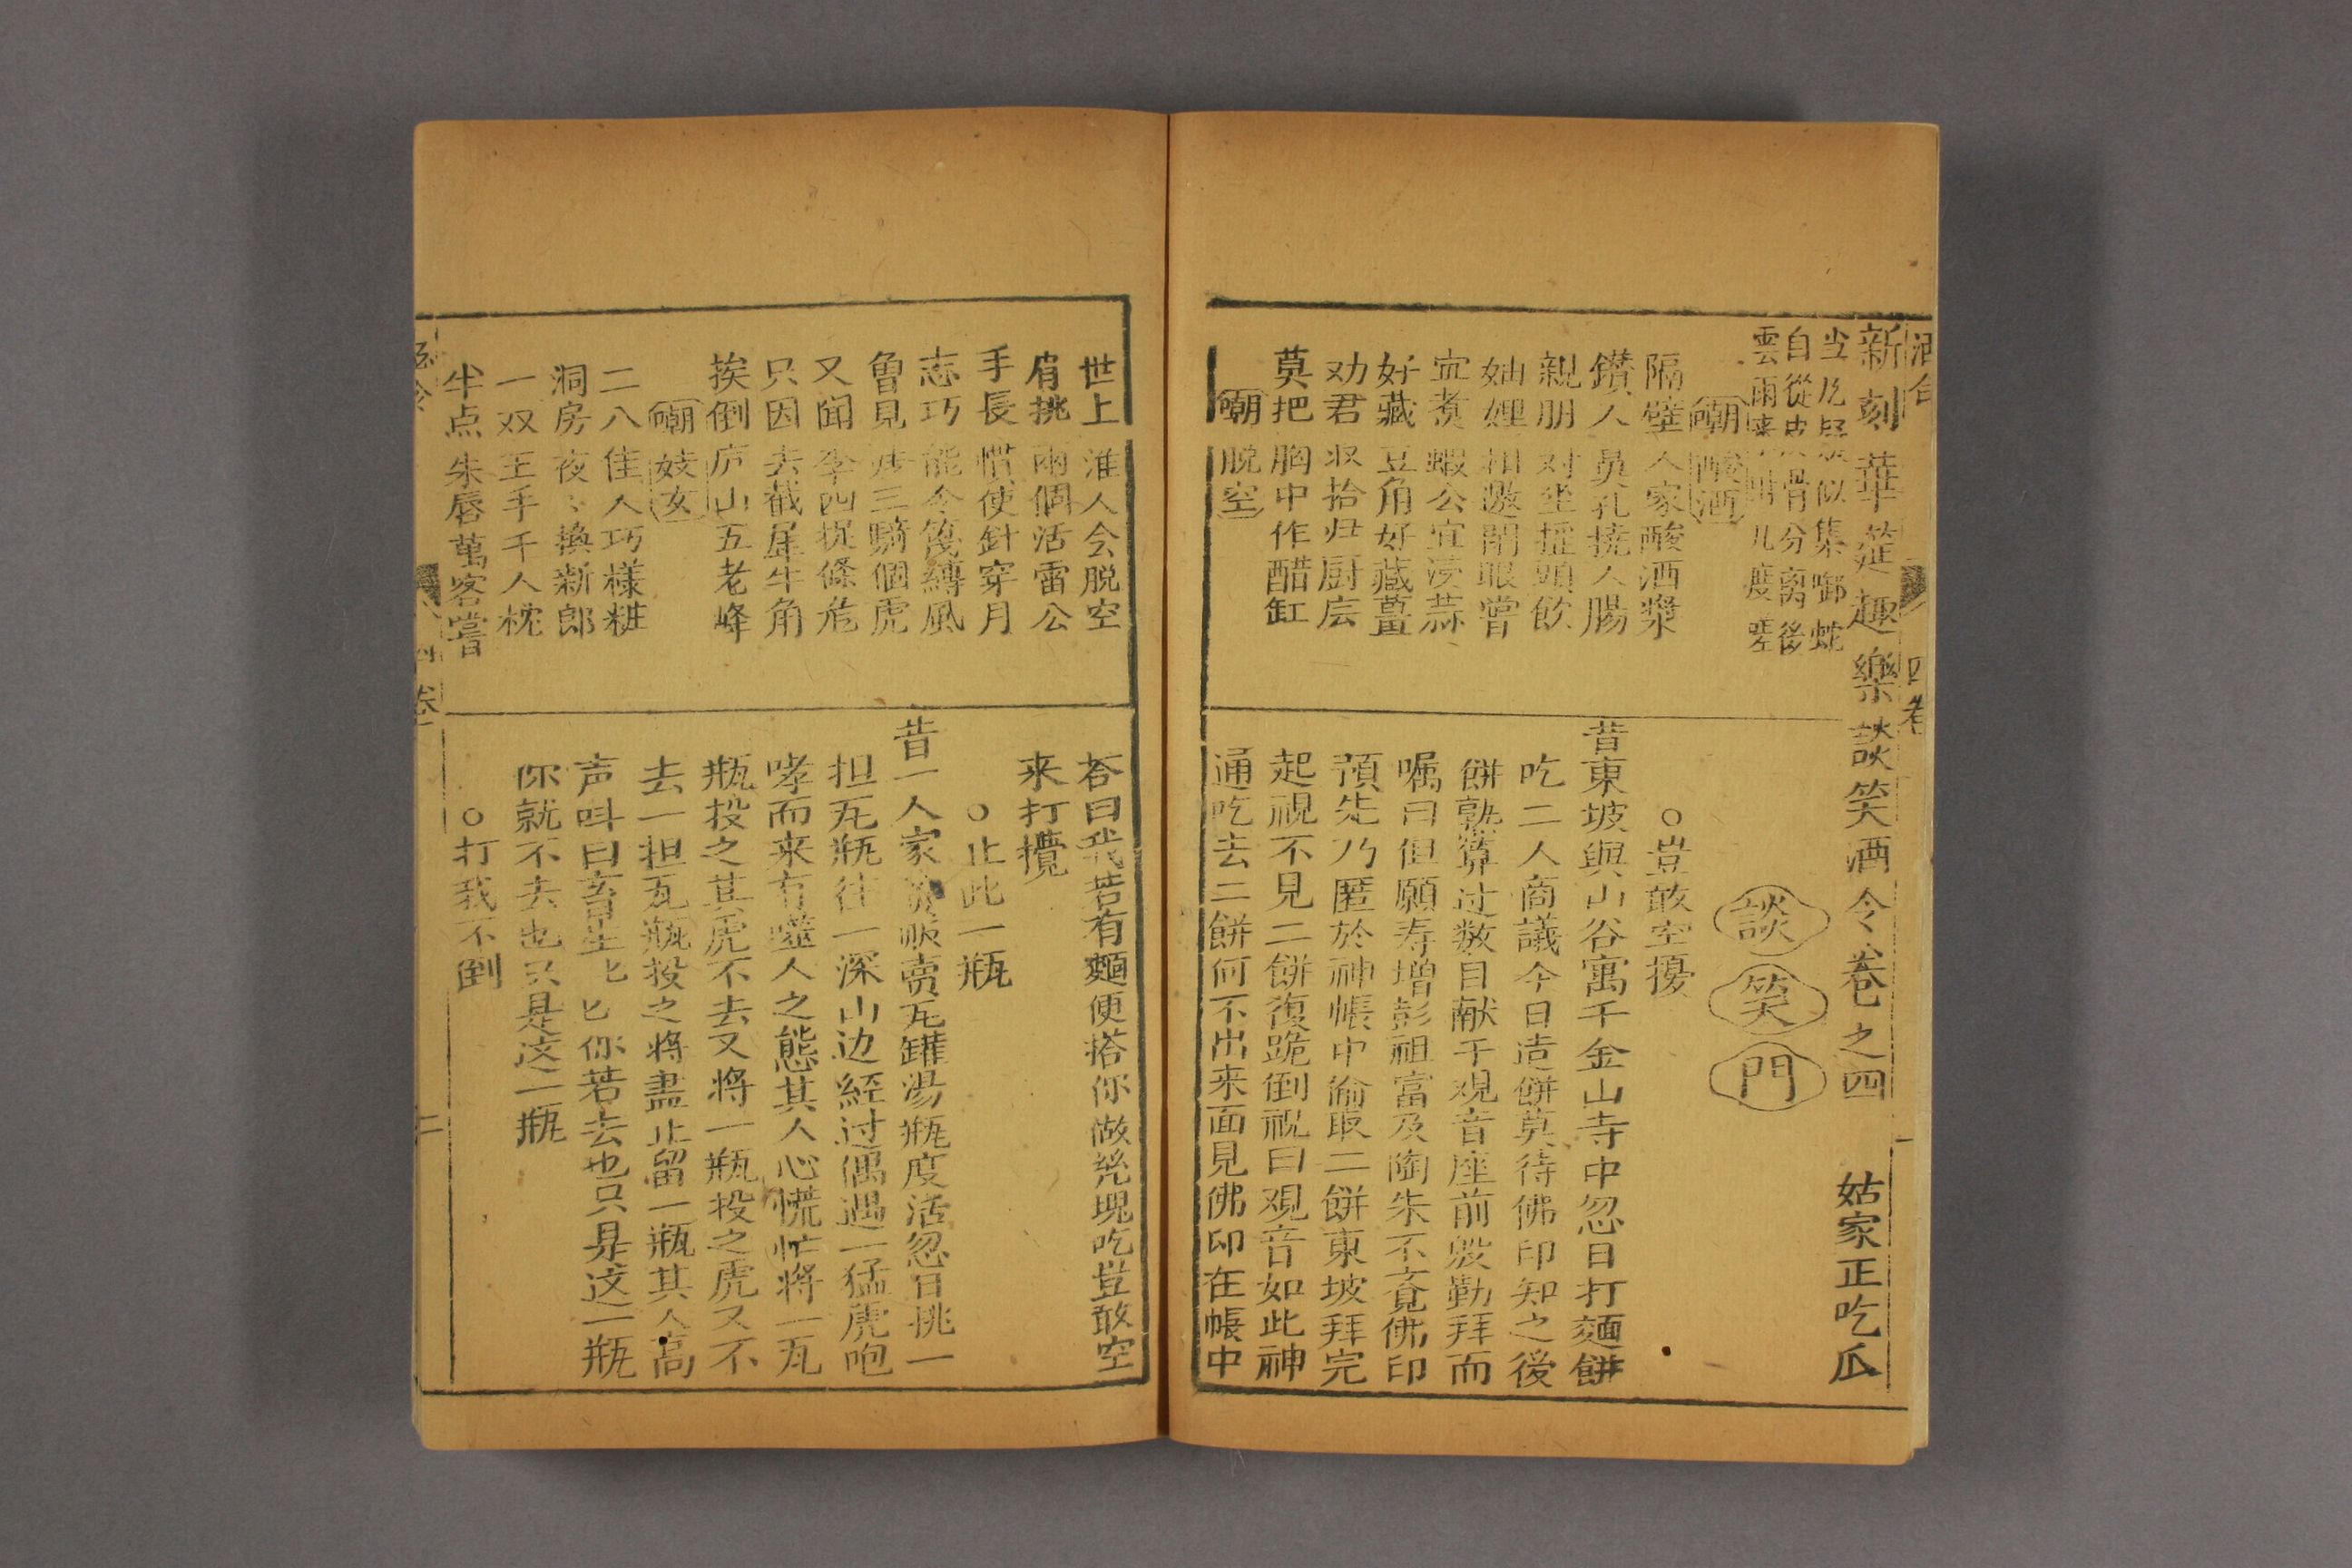 新刻華筵趣樂談笑酒令卷之四　姑家正吃瓜
嘲酸酒
隔壁人家酸酒漿
鑚人鼻孔撓人腸
親朋对坐揺頭飲
妯娌相邀閉眼嘗
宜煮蝦公宜浸蒜
好藏豆角好藏薑
劝君収拾归厨后
莫把胸中作醋缸
嘲脱空
談笑門
○豈敢空擾
昔東坡與山谷寓于金山寺中忽日打麵餅
吃二人商議今日造餅莫待佛印知之後
餅熟算过数目献于观音座前殷勤拜而
嘱曰但願寿增彭祖富及陶朱不竟佛印
預先乃匿於神帳中偷取二餅東坡拜完
起視不見二餅復跪倒祝曰观音如此神
通吃去二餅何不出来面見佛印在帳中
世上谁人会脱空
肩挑兩個活雷公
手長慣使針穿月
志巧能令篾縛風
曾見张三騎個虎
又聞李四捉條龙
只因去截犀牛角
挨倒庐山五老峰
嘲妓女
二八佳人巧樣粧
洞房夜〻換新郎
一双玉手千人枕
半点朱唇萬客嘗
荅曰我若有麵便搭你做几塊吃豈敢空
来打攪
○止此一瓶
昔一人家貧販賣瓦罐湯瓶度活忽日挑一
担瓦瓶往一深山边經过偶遇一猛虎咆
哮而来有噬人之態其人心慌忙将一瓦
瓶投之其虎不去又将一瓶投之虎又不
去一担瓦瓶投之将盡止留一瓶其人高
声呌曰畜生匕匕你若去也只是这一瓶
你就不去也只是这一瓶
○打我不倒